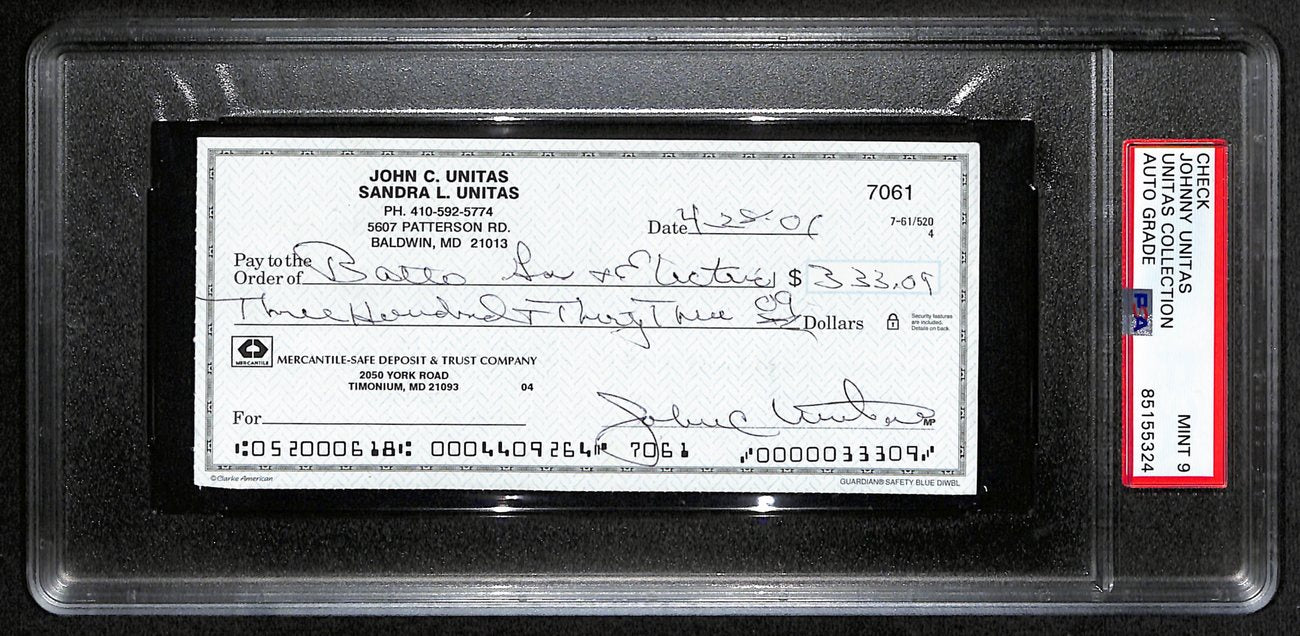 JOHN C. UNITAS
SANDRA L. UNITAS
PH. 410-592-5774
5607 PATTERSON RD.
BALDWIN, MD 21013
7061
7-61/520
4
Date 4-28-01
Pay to the
Order of Balto Gas + Electric $ 333.09
Three Hundred + Thirty Three 09 Dollars
Security features
are included.
Details on back.
MERCANTILE
MERCANTILE-SAFE DEPOSIT & TRUST COMPANY
2050 YORK ROAD
TIMONIUM, MD 21093 04
For
John C Unitas
MP
⑆052000618⑆ 0004409264⑈ 7061 ⑈0000033309⑈
© Clarke American
GUARDIAN® SAFETY BLUE DIWBL
CHECK
JOHNNY UNITAS
UNITAS COLLECTION
AUTO GRADE
PSA
MINT 9
85155324